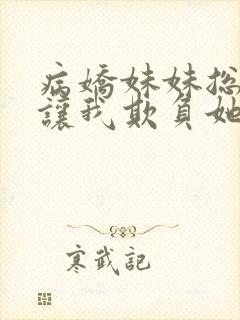 病嬌妹妹總
讓我欺負她
寒武記